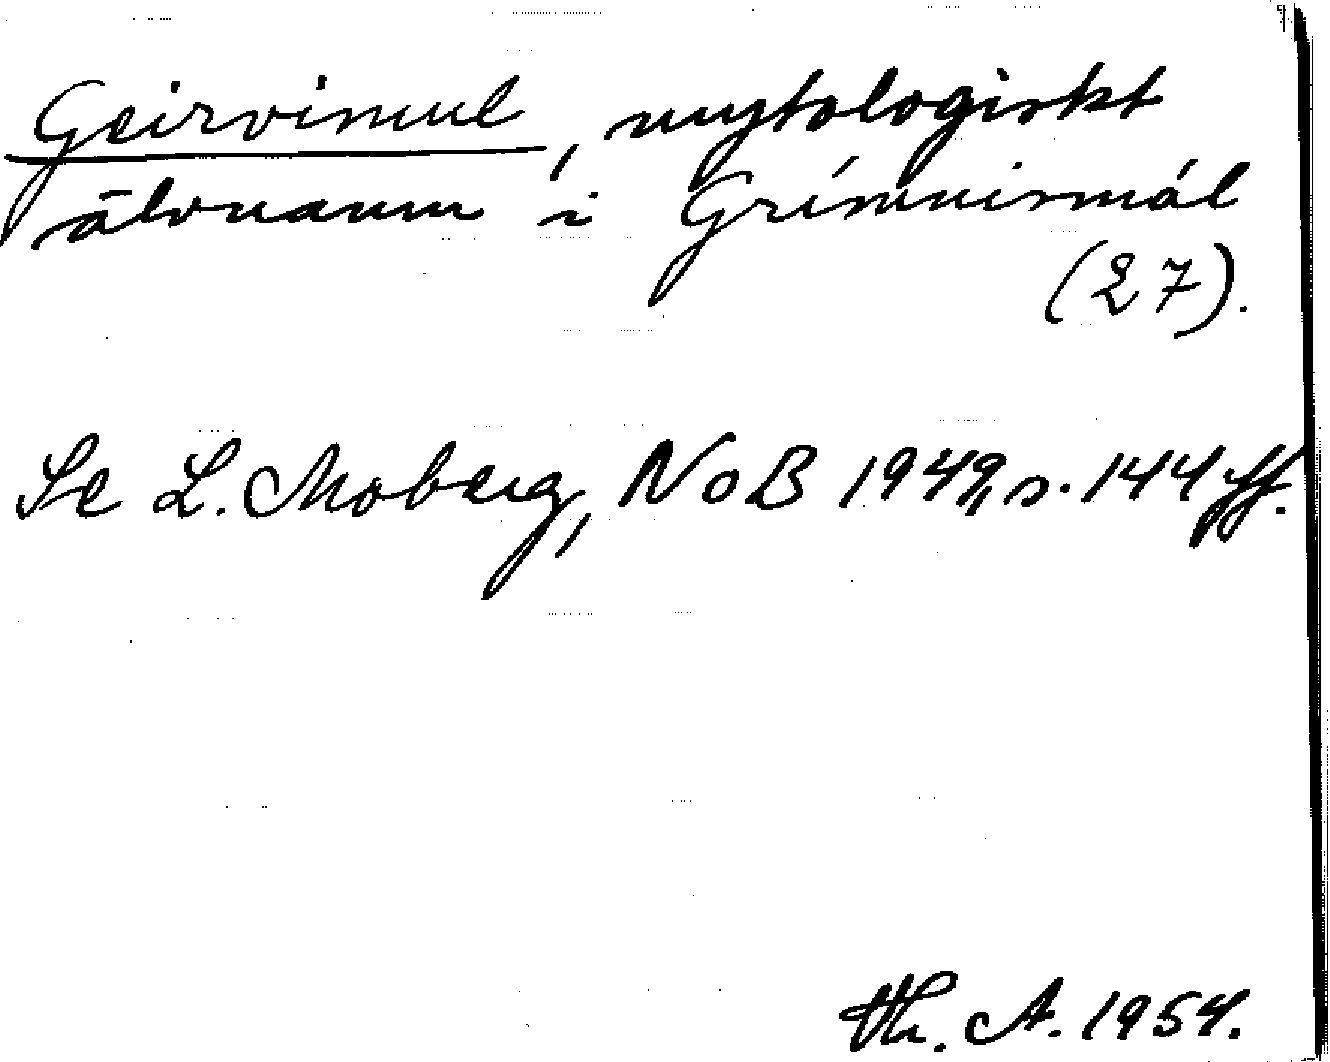 Geirvimul, mytologiskt
älvnamn i Grímnismál
(27).
Se L. Moberg, NoB 1949, s. 144 ff.
Th. A. 1954.